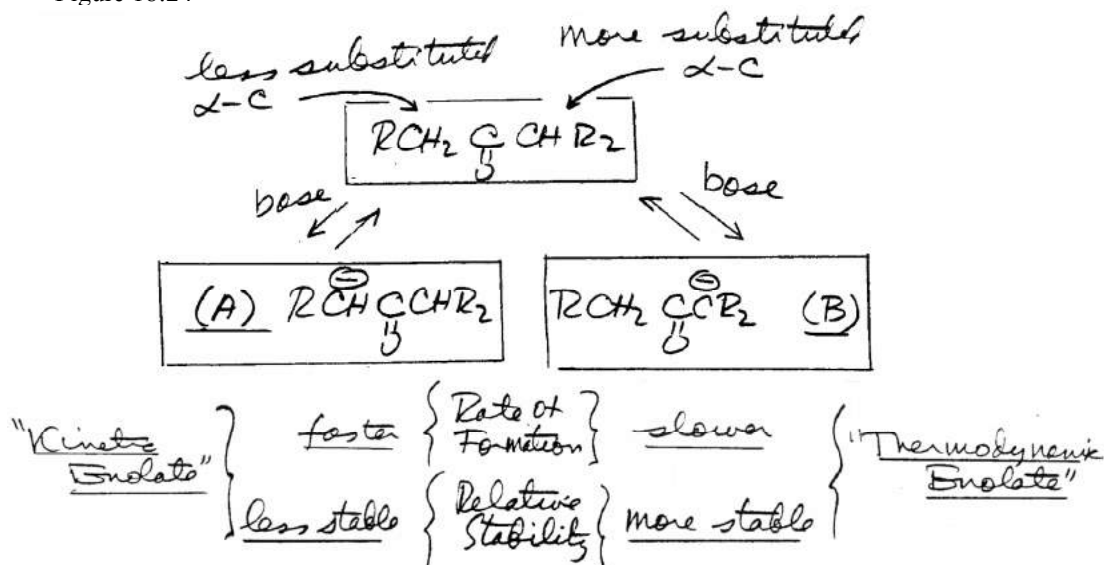 Figure 18.24
less substituted
α-C
more substituted
α-C
RCH₂ C CH R₂
O
base
base
(A) RCH C CHR₂
⊖
O
RCH₂ C CR₂ (B)
⊖
O
"Kinetic
Enolate"
faster
Rate of
Formation
slower
"Thermodynamic
Enolate"
less stable
Relative
Stability
more stable